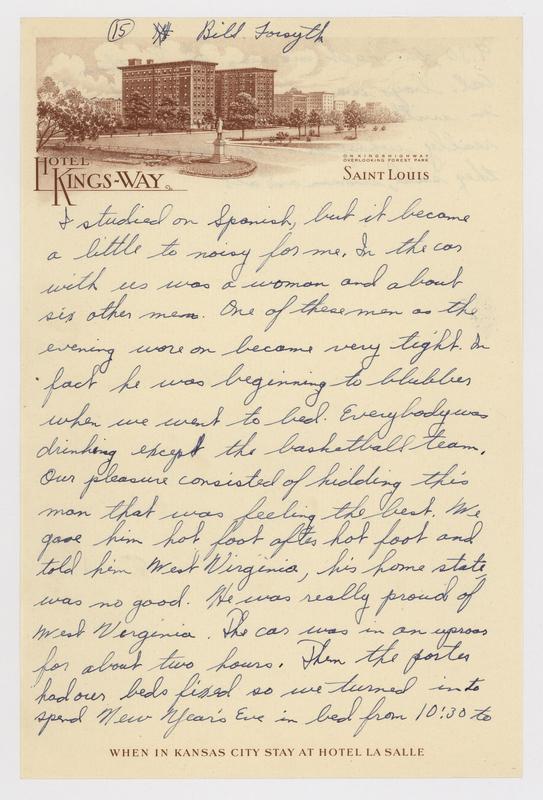 (15) Bill Forsyth
HOTEL
KINGS-WAY
ON KINGSHIGHWAY
OVERLOOKING FOREST PARK
SAINT LOUIS
I studied on Spanish, but it became
a little to noisy for me. In the car
with us was a woman and about
six other men. One of these men as the
evening wore on became very tight. In
fact he was beginning to blubber
when we went to bed. Everybody was
drinking except the basketball team.
Our pleasure consisted of kidding this
man that was feeling the best. We
gave him hot foot after hot foot and
told him West Virginia, his home state,
was no good. He was really proud of
West Virginia. The car was in an uproar
for about two hours. Then the porter
had our beds fixed so we turned in to
spend New Year's Eve in bed from 10:30 to
WHEN IN KANSAS CITY STAY AT HOTEL LA SALLE